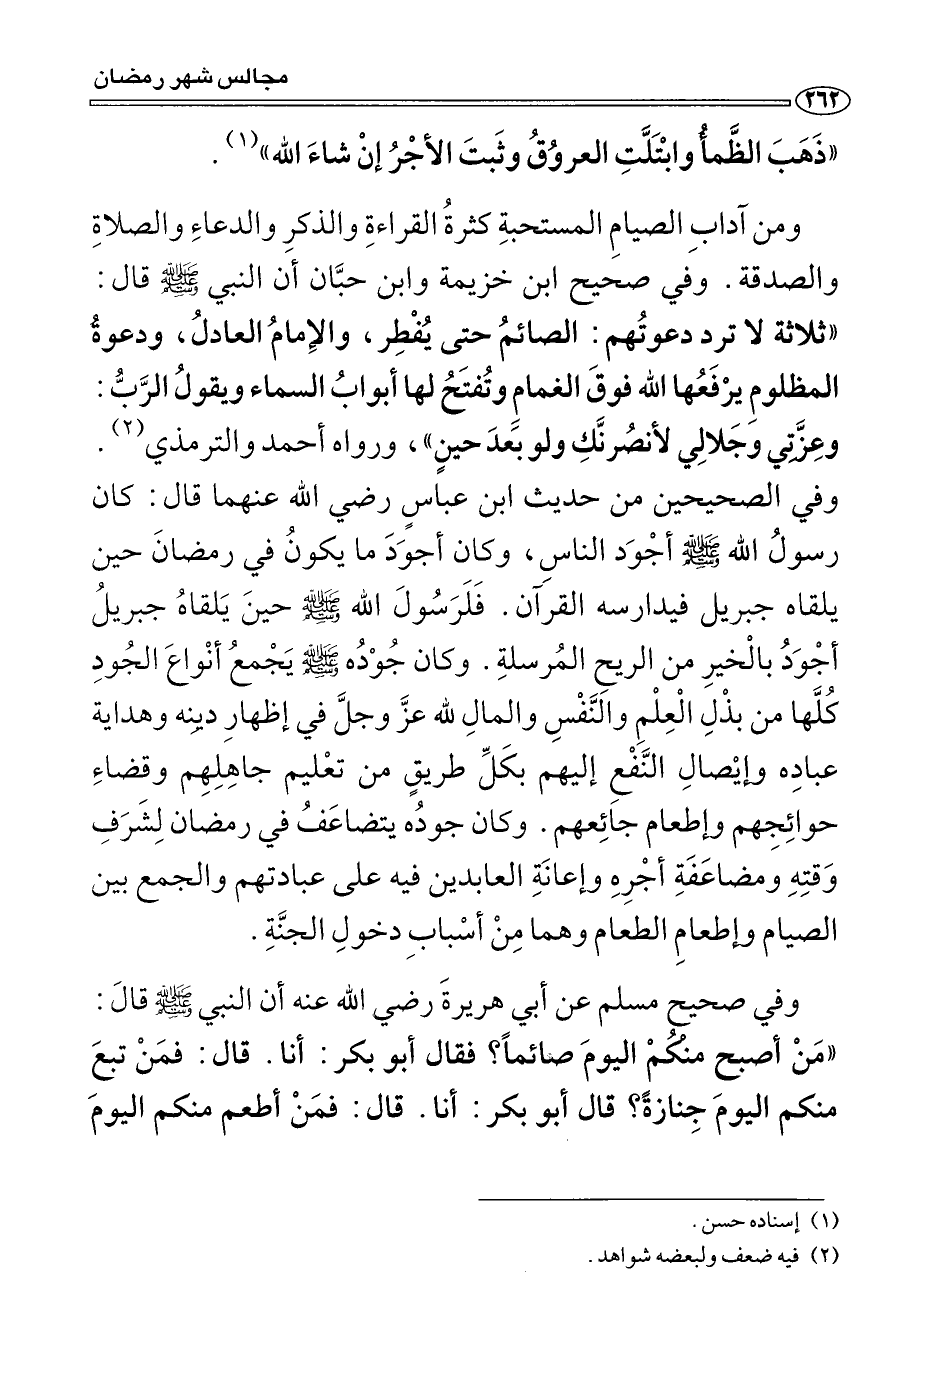 مجالس شهر رمضان
٢٦٢
«ذَهَبَ الظَّمأُ وابْتَلَّتِ العروُقُ وثَبتَ الأجْرُ إنْ شاءَ الله»(١).
ومن آدابِ الصيامِ المستحبةِ كثرةُ القراءةِ والذكرِ والدعاءِ والصلاةِ
والصدقة. وفي صحيح ابن خزيمة وابن حبَّان أن النبي ﷺ قال:
«ثلاثة لا ترد دعوتُهم: الصائمُ حتى يُفْطِر، والإِمامُ العادلُ، ودعوةُ
المظلومِ يرْفَعُها الله فوقَ الغمامِ وتُفتَحُ لها أبوابُ السماء ويقولُ الرَّبُّ:
وعِزَّتِي وَجَلالِي لأنصُرنَّكِ ولو بَعدَ حينٍ»، ورواه أحمد والترمذي(٢).
وفي الصحيحين من حديث ابن عباسٍ رضي الله عنهما قال: كان
رسولُ الله ﷺ أجْوَد الناسِ، وكان أجوَدَ ما يكونُ في رمضانَ حين
يلقاه جبريل فيدارسه القرآن. فَلَرَسُولَ الله ﷺ حينَ يَلقاهُ جبريلُ
أجْوَدُ بالْخيرِ من الريحِ المُرسلةِ. وكان جُوْدُه ﷺ يَجْمعُ أنْواعَ الجُودِ
كُلَّها من بذْلِ الْعِلْمِ والنَّفْسِ والمالِ لله عزَّ وجلَّ في إظهارِ دينِه وهداية
عبادِه وإيْصالِ النَّفْعِ إليهم بكَلِّ طريقٍ من تعْليم جاهِلِهم وقضاءِ
حوائِجِهم وإطعام جائِعهم. وكان جودُه يتضاعَفُ في رمضان لِشَرَفِ
وَقتِهِ ومضاعَفَةِ أجْرِهِ وإعانَةِ العابدين فيه على عبادتهم والجمع بين
الصيام وإطعامِ الطعام وهما مِنْ أسْبابِ دخولِ الجنَّةِ.
وفي صحيح مسلم عن أبي هريرةَ رضي الله عنه أن النبي ﷺ قالَ:
«مَنْ أصبح منْكُمْ اليومَ صائماً؟ فقال أبو بكر: أنا. قال: فمَنْ تبعَ
منكم اليومَ جِنازةً؟ قال أبو بكر: أنا. قال: فمَنْ أطعم منكم اليومَ
(١) إسناده حسن.
(٢) فيه ضعف ولبعضه شواهد.